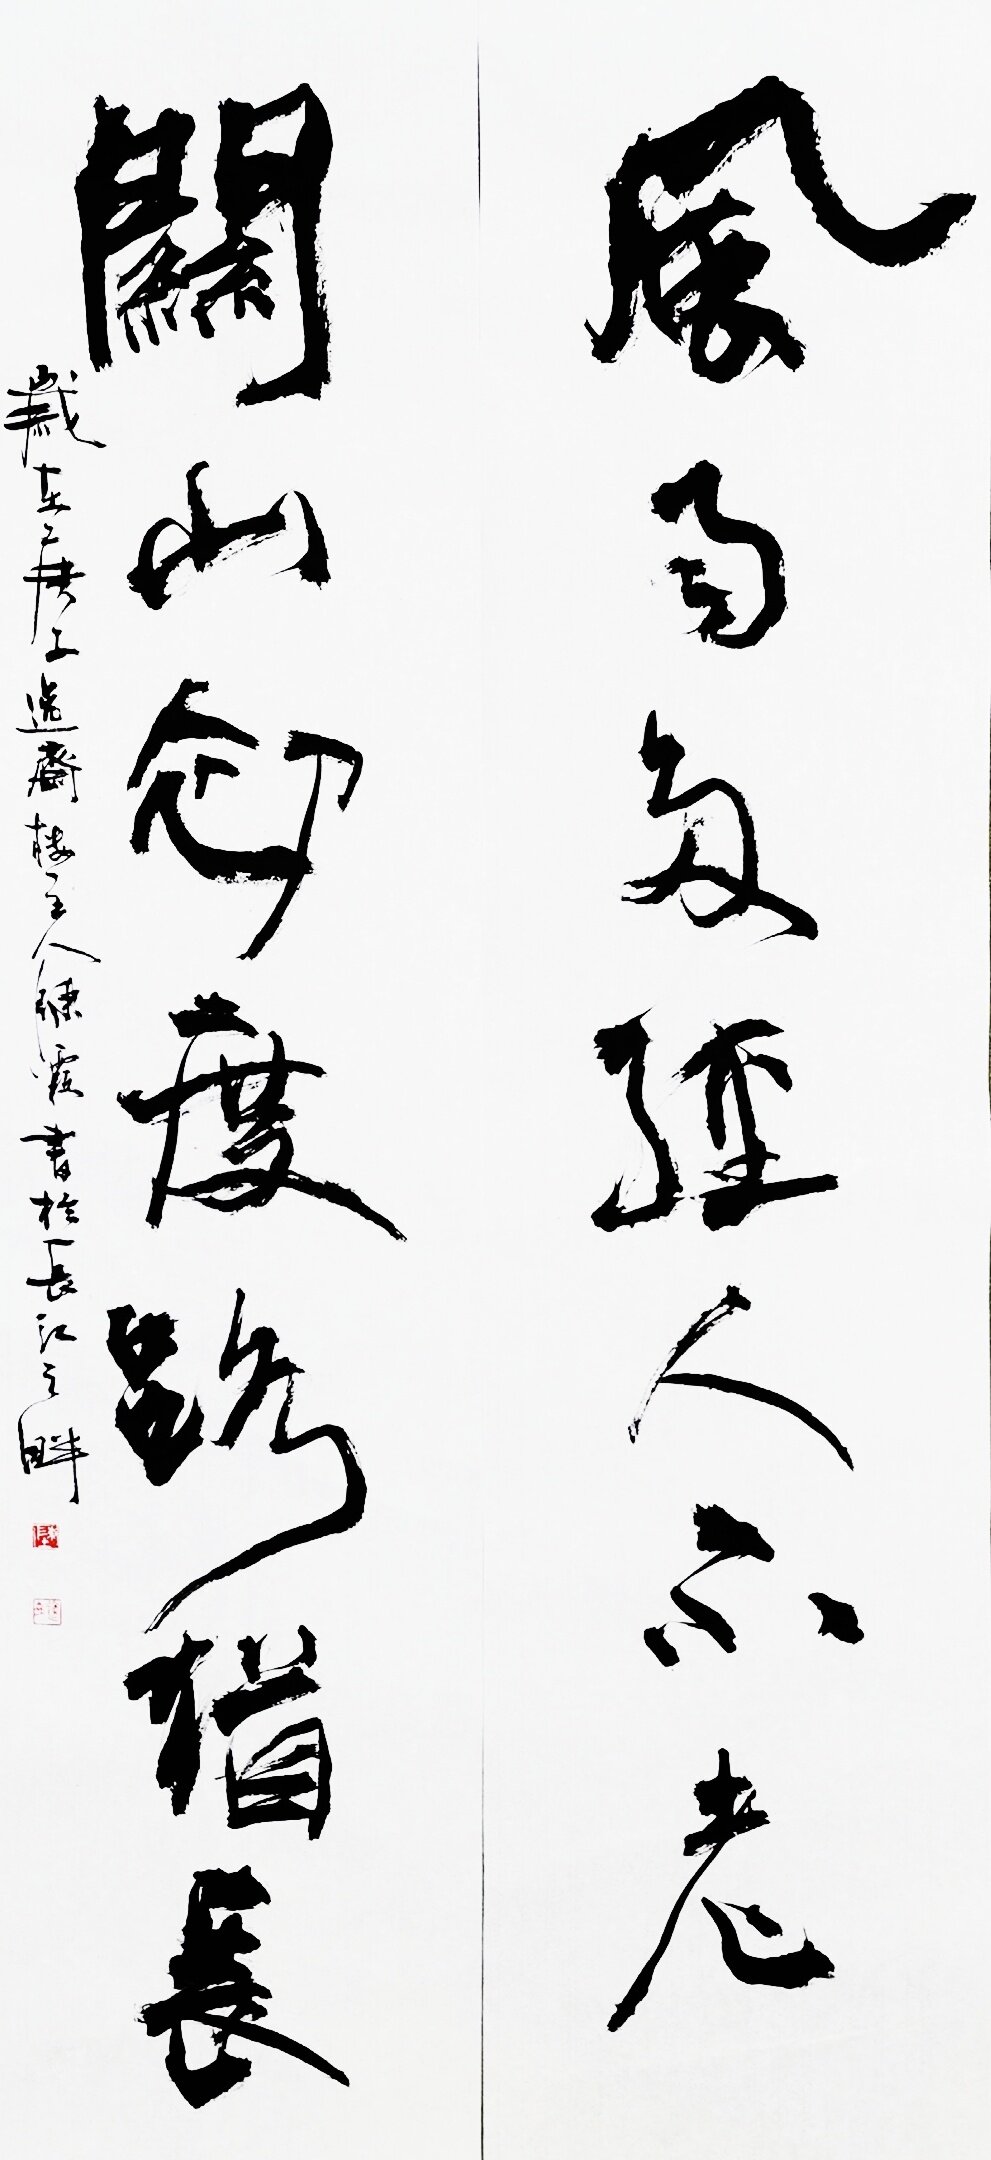 風雨多經人不老
關山初度路猶長
歲在庚子逸齋樓主人練霞書於長江之畔